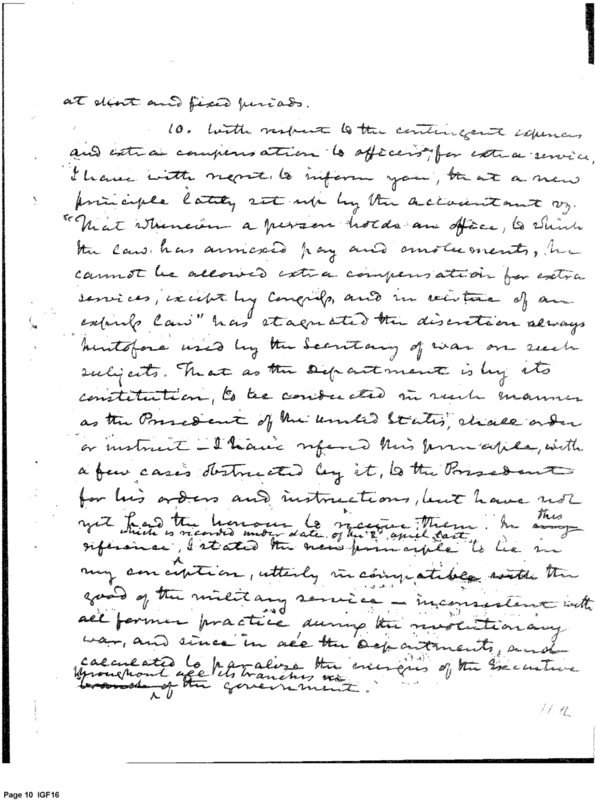 at short and fixed periods.
10. With respect to the contingent expences
and extra compensation to officers, for extra service,
I have with regret to inform you, that a new
principle lately set up by the accountant vz.
"That whenever a person holds an office, to which
the law has annexed pay and emoluments, he
cannot be allowed extra compensation for extra
services, except by Congress, and in virtue of an
express law" has stagnated the discretion always
heretofore used by the Secretary of war on such
subjects. That as the Department is by its
constitution, to be conducted in such manner
as the President of the United States, shall order
or instruct — I have referred this principle, with
a few cases obstructed by it, to the President
for his orders and instructions, but have not
yet had the honour to receive them. In this
which is recorded under date of the 2d april last
reference, I stated the new principle to be in
my conception, utterly incompatible with the
good of the military service — inconsistent with
all former practice during the revolutionary
war, and since in all the Departments, and
calculated to paralise the energies of the Executive
throughout all its branches
branch of the government.
11th
Page 10 IGF16